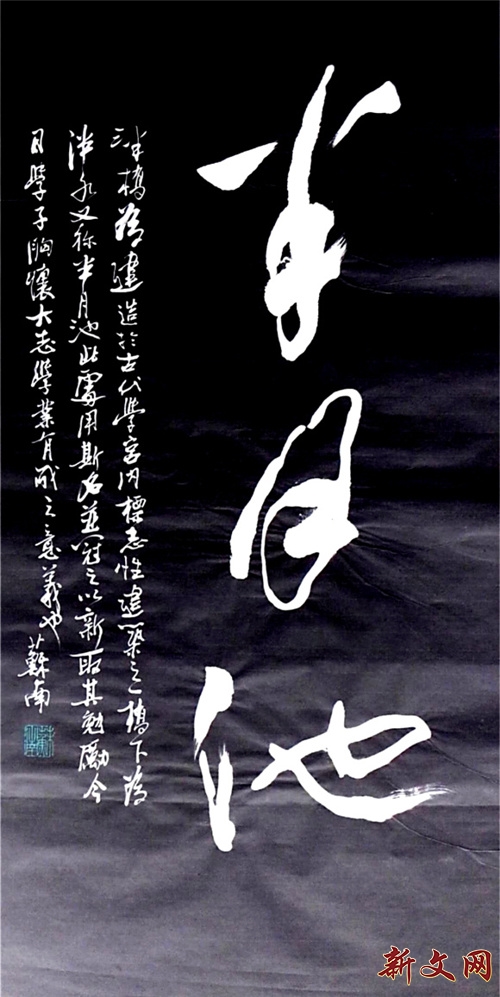 半月池
泮橋為建造於古代學宮內標志性建築之一橋下為
泮水又称半月池此處用斯名並冠之以新取其勉勵今
日學子胸懷大志學業有成之意義也 蘇南
新文网